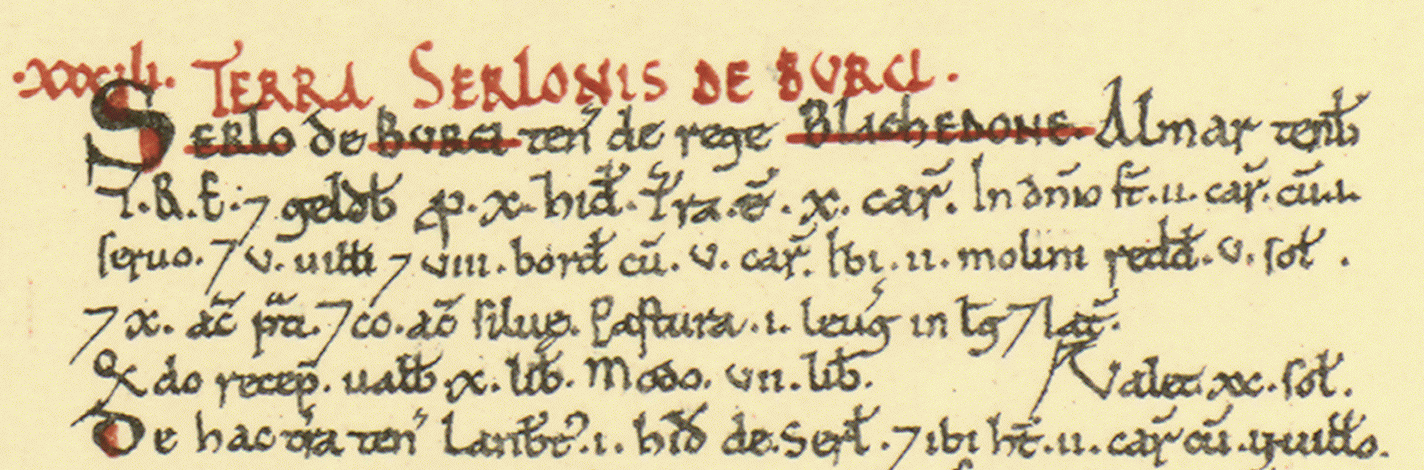 .XXXIII. TERRA SERLONIS DE BURCI.
SERLO de BURCI ten̄ de rege BLACHEDONE. Almar teneb̄
T.R.E. ⁊ geldb̄ ꝓ .x. hid̄. Tr̄a. ē .x. car̄. In dn̄io st̄ .ii. car̄. cū .i.
seruo. ⁊ v. uiƚƚi ⁊ viii. bord̄ cū .v. car̄. Ibi .ii. molini redd̄ .v. soƚ.
⁊ x. ac̄ p̄ti. ⁊ cc. ac̄ siluę. Pastura .i. leug̃ in lḡ ⁊ lat̄.
Qđo recep̄. ualb̄ .x. lib̄. Modo. vii. lib̄.
Valet xc. soƚ.
De hac tr̄a ten̄ Lanbt̄ .i. hid̄ de Serl̄. ⁊ ibi ht̄ .ii. car̄ cū uiƚƚo.